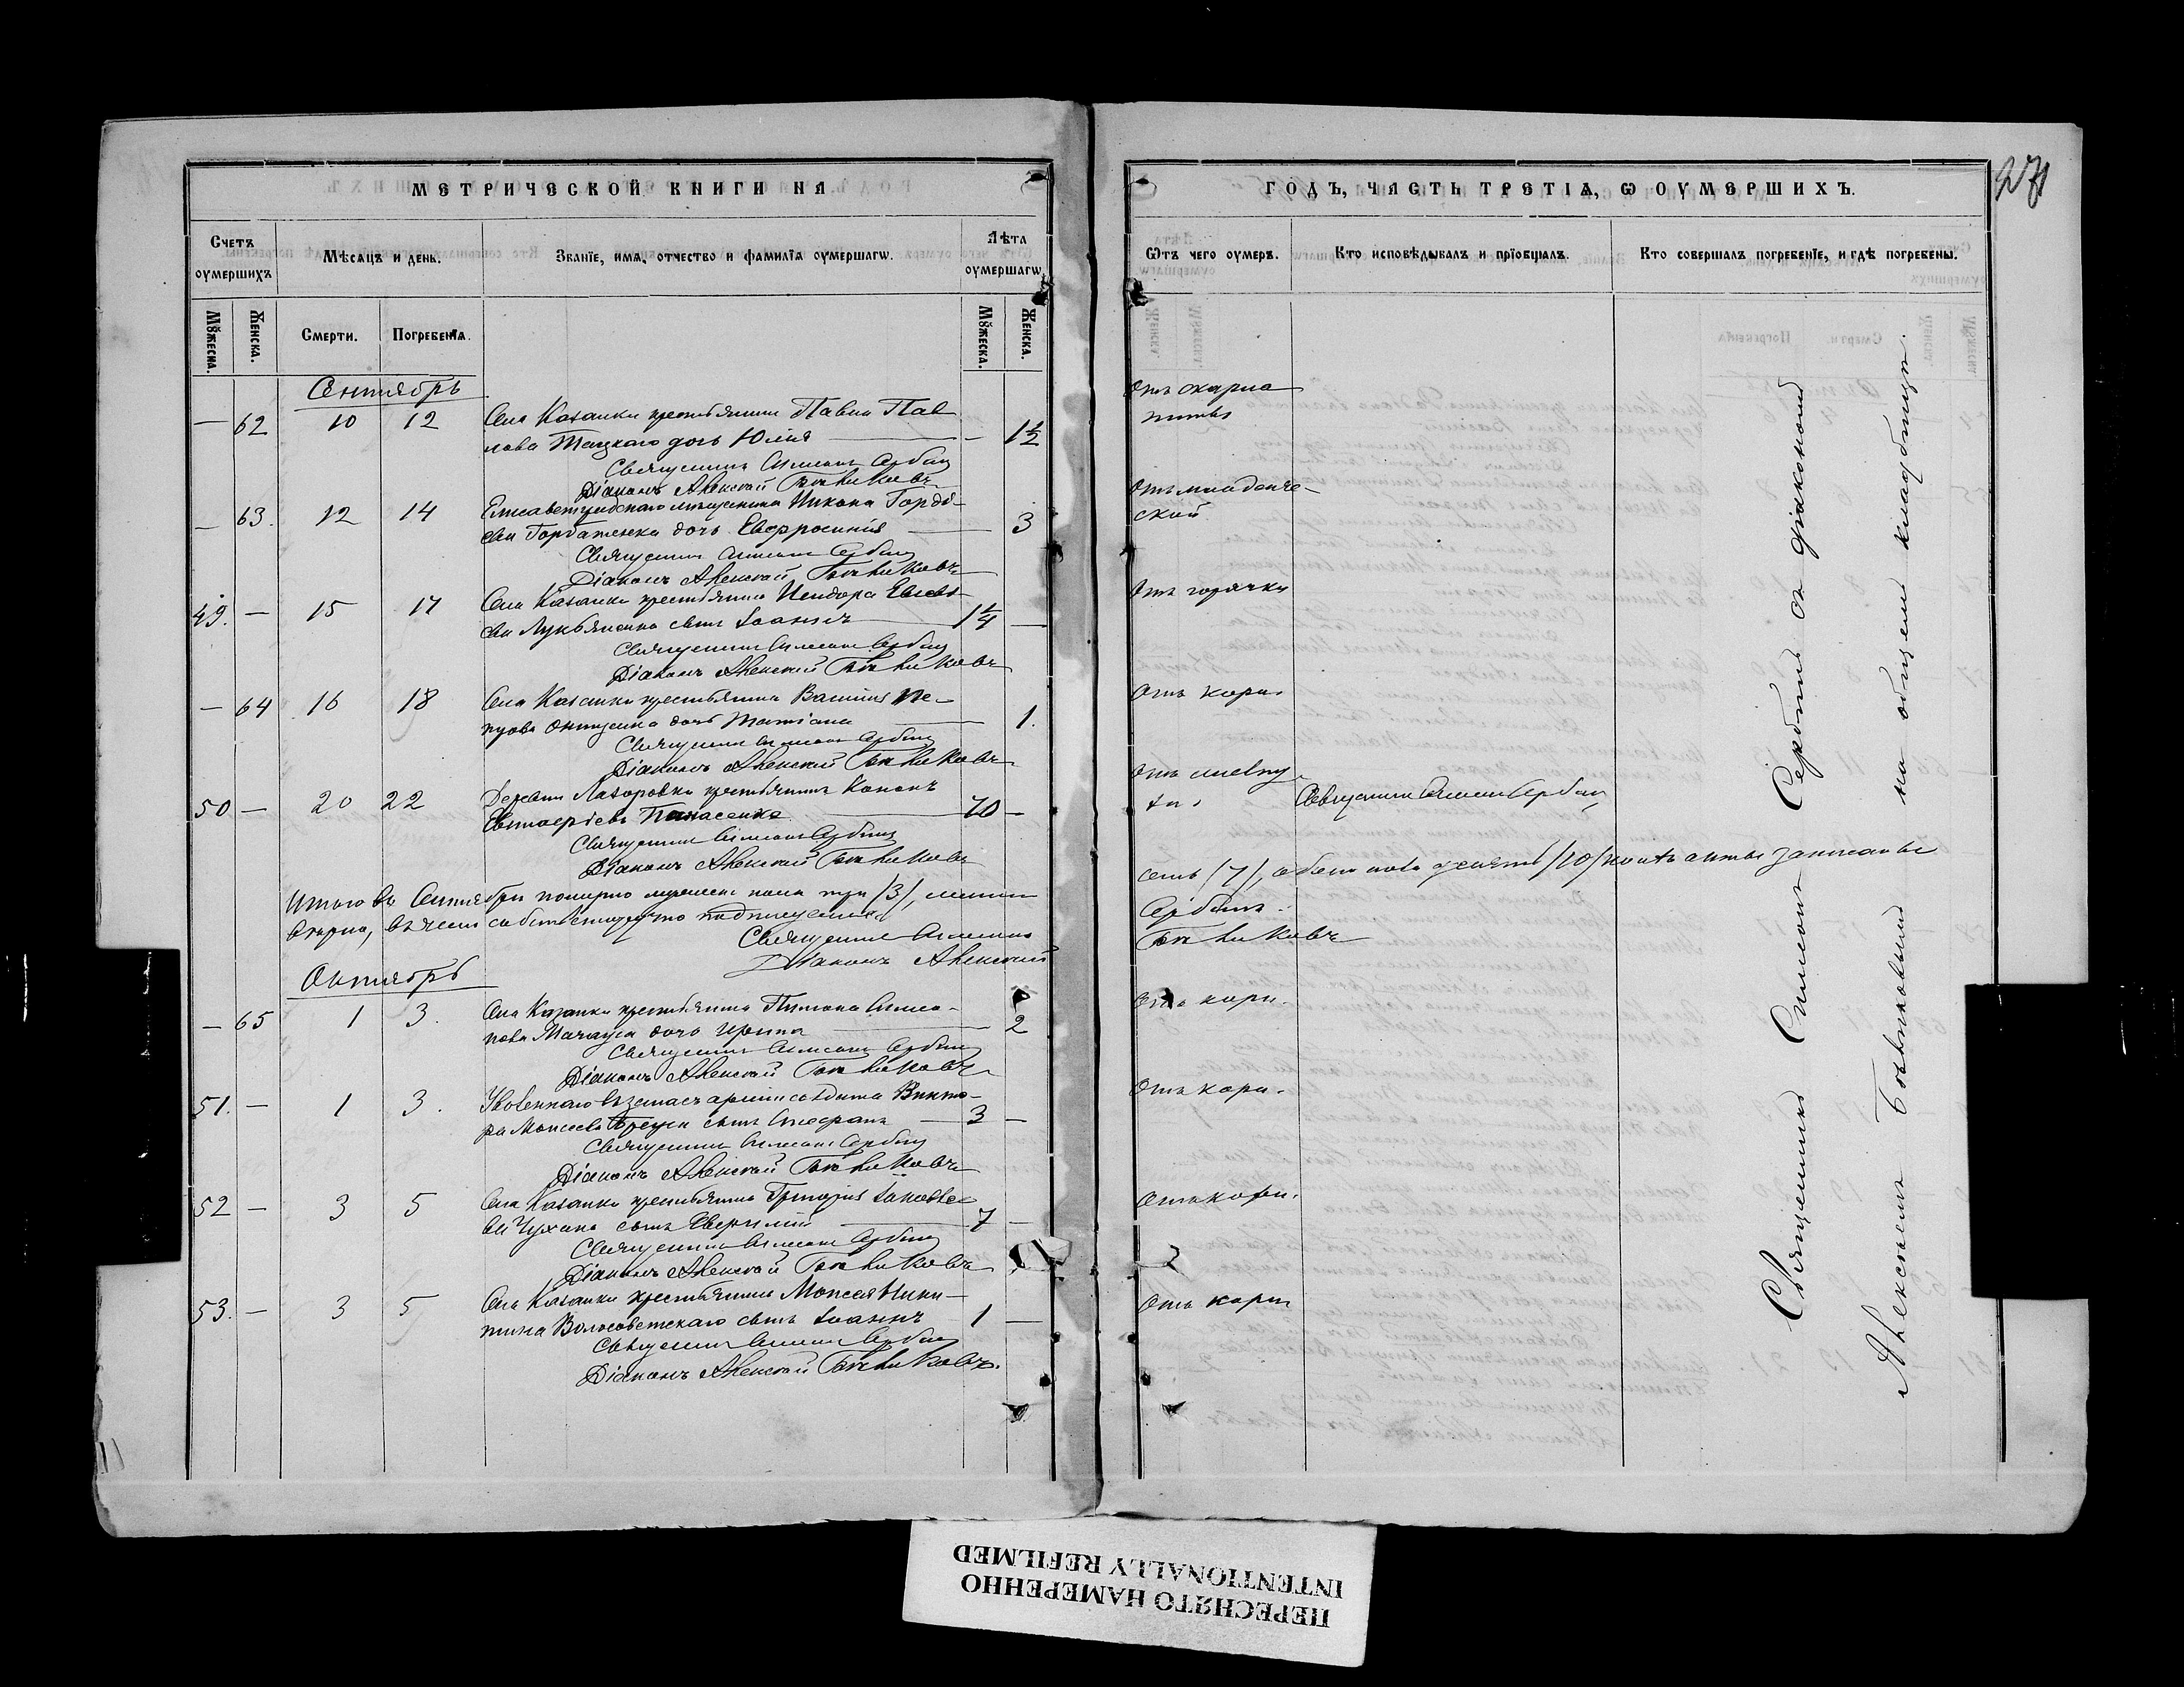 МЕТРИЧЕСКОЙ КНИГИ НА
Счетъ оумершихъ
Мѣсяцъ и день.
Званїе, имѧ, отчество и фамилїа оумершагѡ.
Лѣта оумершагѡ
Мꙋжеска.
Женска.
Смерти.
Погребенїѧ.
Мꙋжеска.
Женска.
Сентябрь
— 62 10 12 Села Казанки крестьянина Павла Пав
лова Таңкаго дочь Юлія — 1½
Священникъ Симеонъ Сербинъ
Діаконъ Алексѣй
— 63. 12 14 Елисаветградскаго мѣщанина Никона Гордѣ-
ева Горбатенка дочь Евфросинія 3
Священникъ Симеонъ Сербинъ
Діаконъ Алексѣй
49. — 15 17 Села Казанки крестьянина Исидора Евсевь-
ева Лукьяненка сынъ Іоаннъ 1¼ —
Священникъ Симеонъ Сербинъ
Діаконъ Алексѣй
— 64 16 18 Села Казанки крестьянина Василія Пе-
трова Онищенка дочь Татіана 1.
Священникъ Симеонъ Сербинъ
Діаконъ Алексѣй
50 — 20 22 Деревни Лазоровки крестьянинъ Кононъ
Евстаѳіевъ Панасенко 70 —
Священникъ Симеонъ Сербинъ
Діаконъ Алексѣй
Итого въ Сентябрѣ померло мужеска пола три (3), женска
вѣрно, въ чемъ собственноручно подписуемся
Священникъ Симеонъ
Діаконъ Алексѣй
Октябрь
— 65 1 3. Села Казанки крестьянина Тимона Симео-
нова дочь Ирина 2
Священникъ Симеонъ Сербинъ
Діаконъ Алексѣй
51. — 1 3. Уволеннаго въ запасъ арміи солдата Викто-
ра Моисеева сынъ Стефанъ 3 —
Священникъ Симеонъ Сербинъ
Діаконъ Алексѣй
52 — 3 5 Села Казанки крестьянина Григорія Іаковле-
ва Чухана сынъ 7 —
Священникъ Симеонъ Сербинъ
Діаконъ Алексѣй
53. — 3 5 Села Казанки крестьянина Моисея Ники-
тина Волосоветскаго сынъ Іоаннъ 1 —
Священникъ Симеонъ Сербинъ
Діаконъ Алексѣй
ГОДЪ, ЧАСТЬ ТРЕТІѦ, Ѡ ОУМЕРШИХЪ.
271
Ѿтъ чего оумеръ.
Кто исповѣдывалъ и прїобщалъ.
Кто совершалъ погребенїе, и гдѣ погребены.
Отъ скарла
тины
Отъ младенче-
ской
Отъ горячки
Отъ кори
Отъ
Священникъ Симеонъ Сербинъ
семь (7), обоего пола десять (10) коихъ акты записаны
Сербинъ
Отъ кори.
Отъ кори.
Отъ кори.
Отъ кори
Священникъ Симеонъ Сербинъ съ діакономъ
Алексѣемъ на общемъ кладбищѣ.
ПЕРЕСНЯТО НАМЕРЕННО
INTENTIONALLY REFILMED